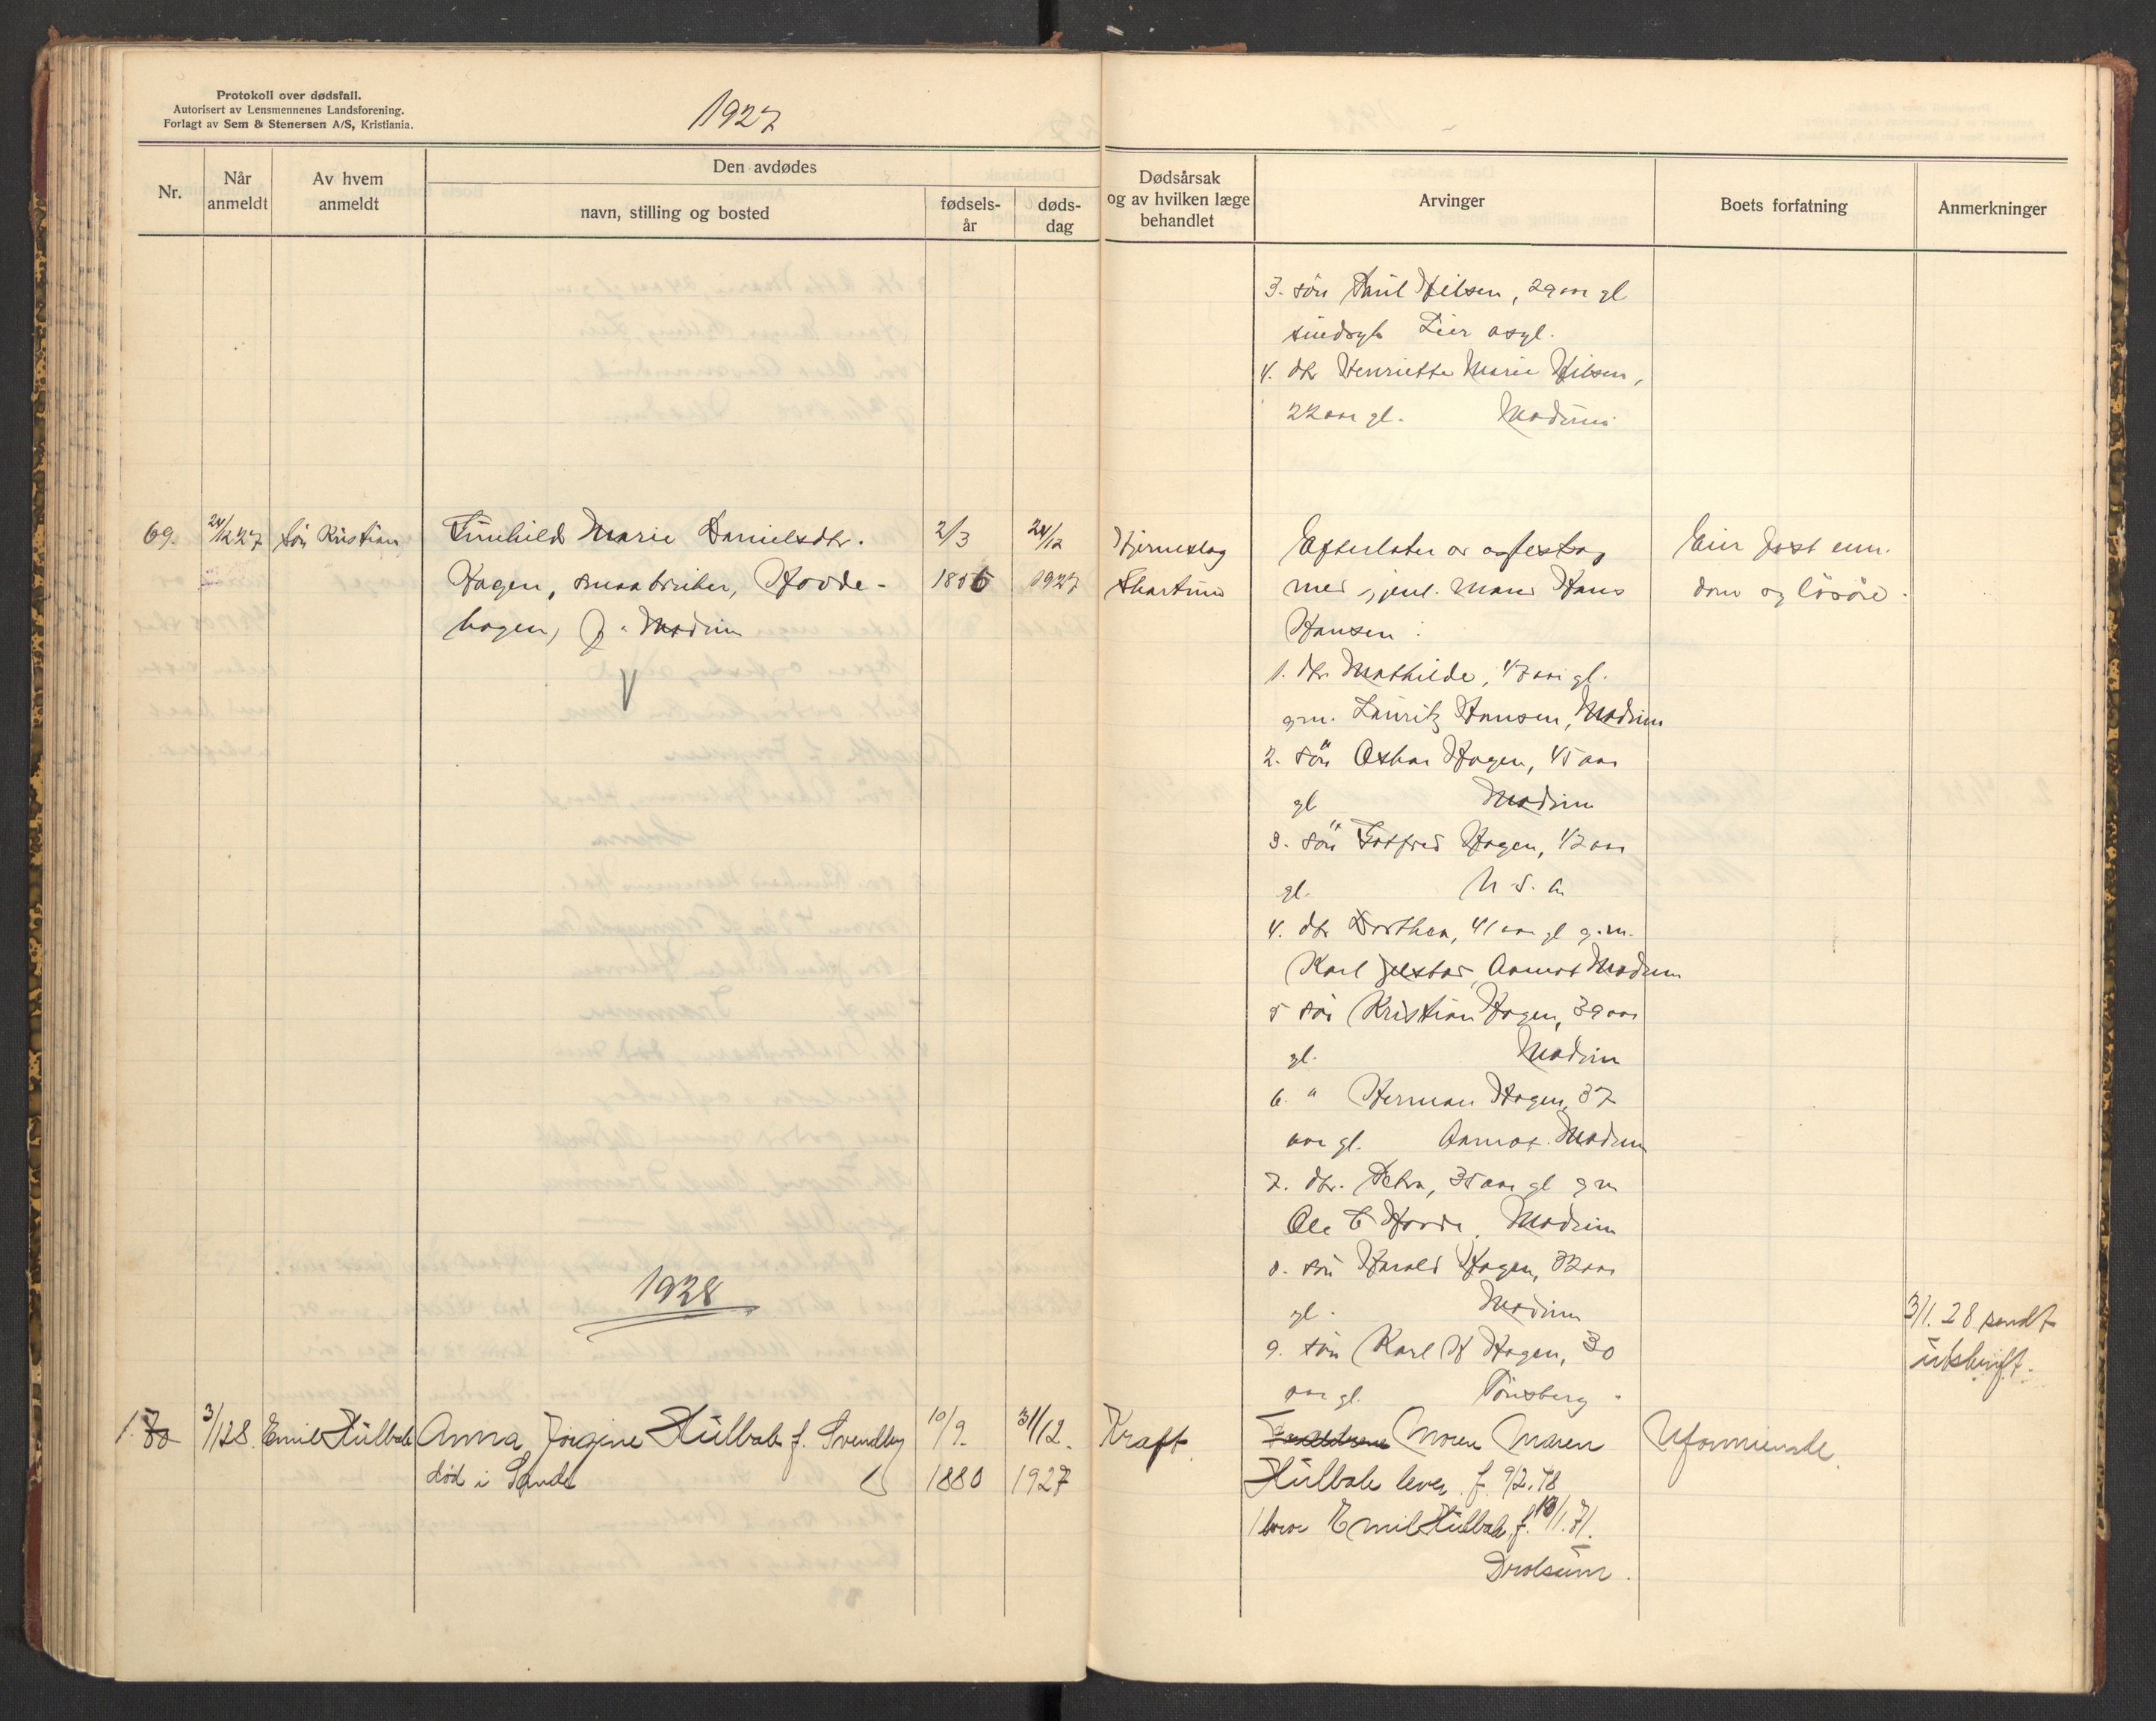 Protokoll over dødsfall.
Autorisert av Lensmennenes Landsforening.
Forlagt av Sem & Stenersen A/S, Kristiania.
1927
Nr.
Når anmeldt
Av hvem anmeldt
Den avdødes
navn, stilling og bosted
fødsels-
år
døds-
dag
Dødsårsak
og av hvilken læge
behandlet
Arvinger
Boets forfatning
Anmerkninger
3. søn Paul Nilsen, 29 aar gl
sindsyk Lier asyl.
4. dtr Henriette Marie Nilsen,
22 aar gl. Modum
69. 24/12 27 søn Kristian
Gunhild Marie Danielsdtr.
Hagen, smaabruker, Hovde-
hagen, Modum
2/3
1856
24/12
1927
Hjerneslag
Skartum
Efterlater av egteskap
med gjenl. mand Hans
Hansen:
1. dtr. Mathilde, 47 aar gl.
g.m. Lauritz Hansen, Modum
2. søn Oskar Hagen, 45 aar
gl Modum
3. søn Gotfred Hagen, 43 aar
gl. U.S.A.
4. dtr Dorthea, 41 aar gl g.m.
Karl Aamot Modum
5 søn Kristian Hagen, 39 aar
gl. Modum
6. " Herman Hagen, 37
aar gl. Aamot. Modum
7. dtr. Petra, 35 aar gl g m
Ole E Hovde, Modum
8. søn Harald Hagen, 32 aar
gl. Modum
9. søn Karl H Hagen, 30
aar gl. Tønsberg.
Eier fast eien-
dom og løsøre.
1928
3/1. 28 sendt
utskrift.
1. 70 3/1 28. Emil Hulbak
Anna Jørgine Hulbak f. Svendby
død i Sande
10/9.
1880
31/12.
1927
Kræft.
Forældrene Moren Maren
Hulbak lever. f. 9/2. 48
1 bror Emil Hulbak, f. 10/1. 71.
Drolsum.
Uformuende.